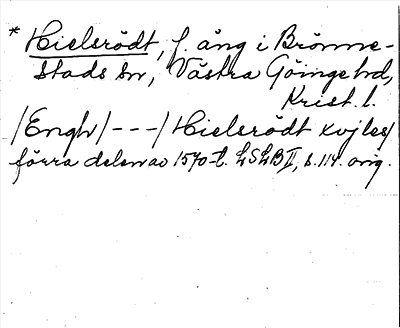 * Hielsrödt, f. äng i Brönne-
stads sn, Västra Göinge hd,
Krist. l.
/Engh/ --- / Hielsrödt kvjles/
förra delen av 1570-t. LSLB II, s. 114. orig.